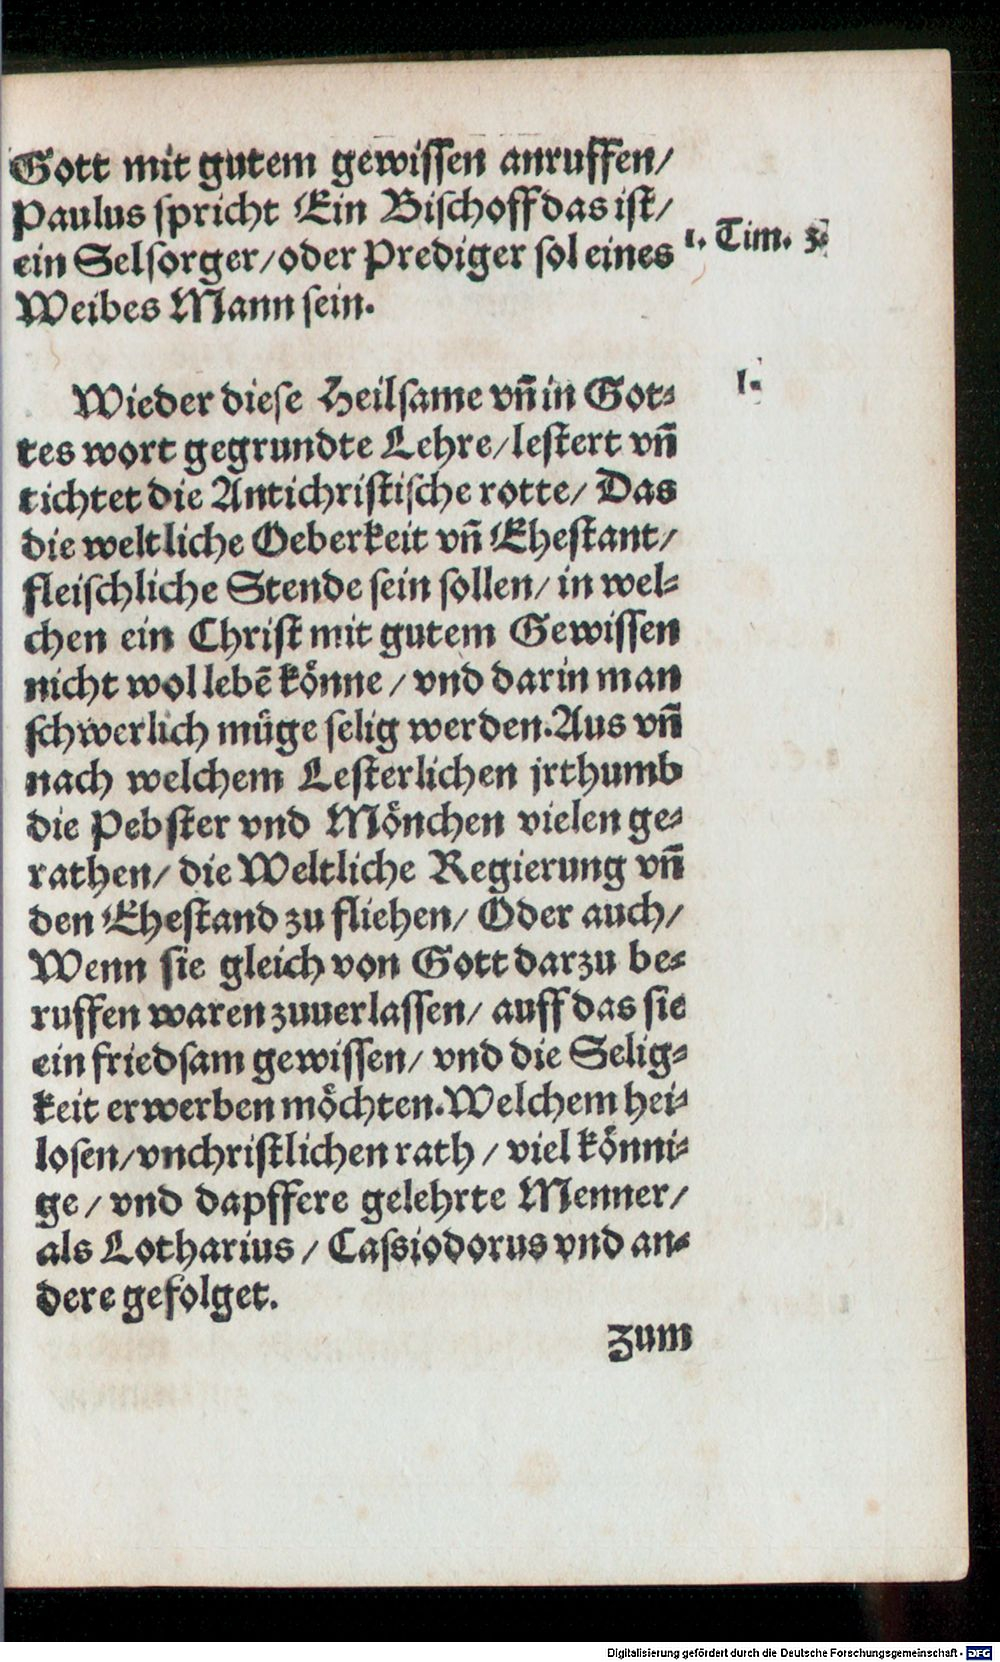 Gott mit gutem gewissen anruffen/
Paulus spricht Ein Bischoff das ist/
ein Selsorger/oder Prediger sol eines
1. Tim. 3.
Weibes Mann sein.
Wieder diese Heilsame vñ in Got-
1.
tes wort gegrundte Lehre/lestert vñ
tichtet die Antichristische rotte/ Das
die weltliche Oeberkeit vñ Ehestant/
fleischliche Stende sein sollen/ in wel-
chen ein Christ mit gutem Gewissen
nicht wol lebẽ könne / vnd darin man
schwerlich müge selig werden. Aus vñ
nach welchem Lesterlichen jrthumb
die Pebster vnd Mönchen vielen ge-
rathen/ die Weltliche Regierung vñ
den Ehestand zu fliehen/ Oder auch/
Wenn sie gleich von Gott darzu be-
ruffen waren zuuerlassen/ auff das sie
ein friedsam gewissen/ vnd die Selig-
keit erwerben möchten. Welchem hei-
losen/vnchristlichen rath / viel könni-
ge / vnd dapffere gelehrte Menner/
als Lotharius / Cassiodorus vnd an-
dere gefolget.
zum
Digitalisierung gefördert durch die Deutsche Forschungsgemeinschaft - DFG